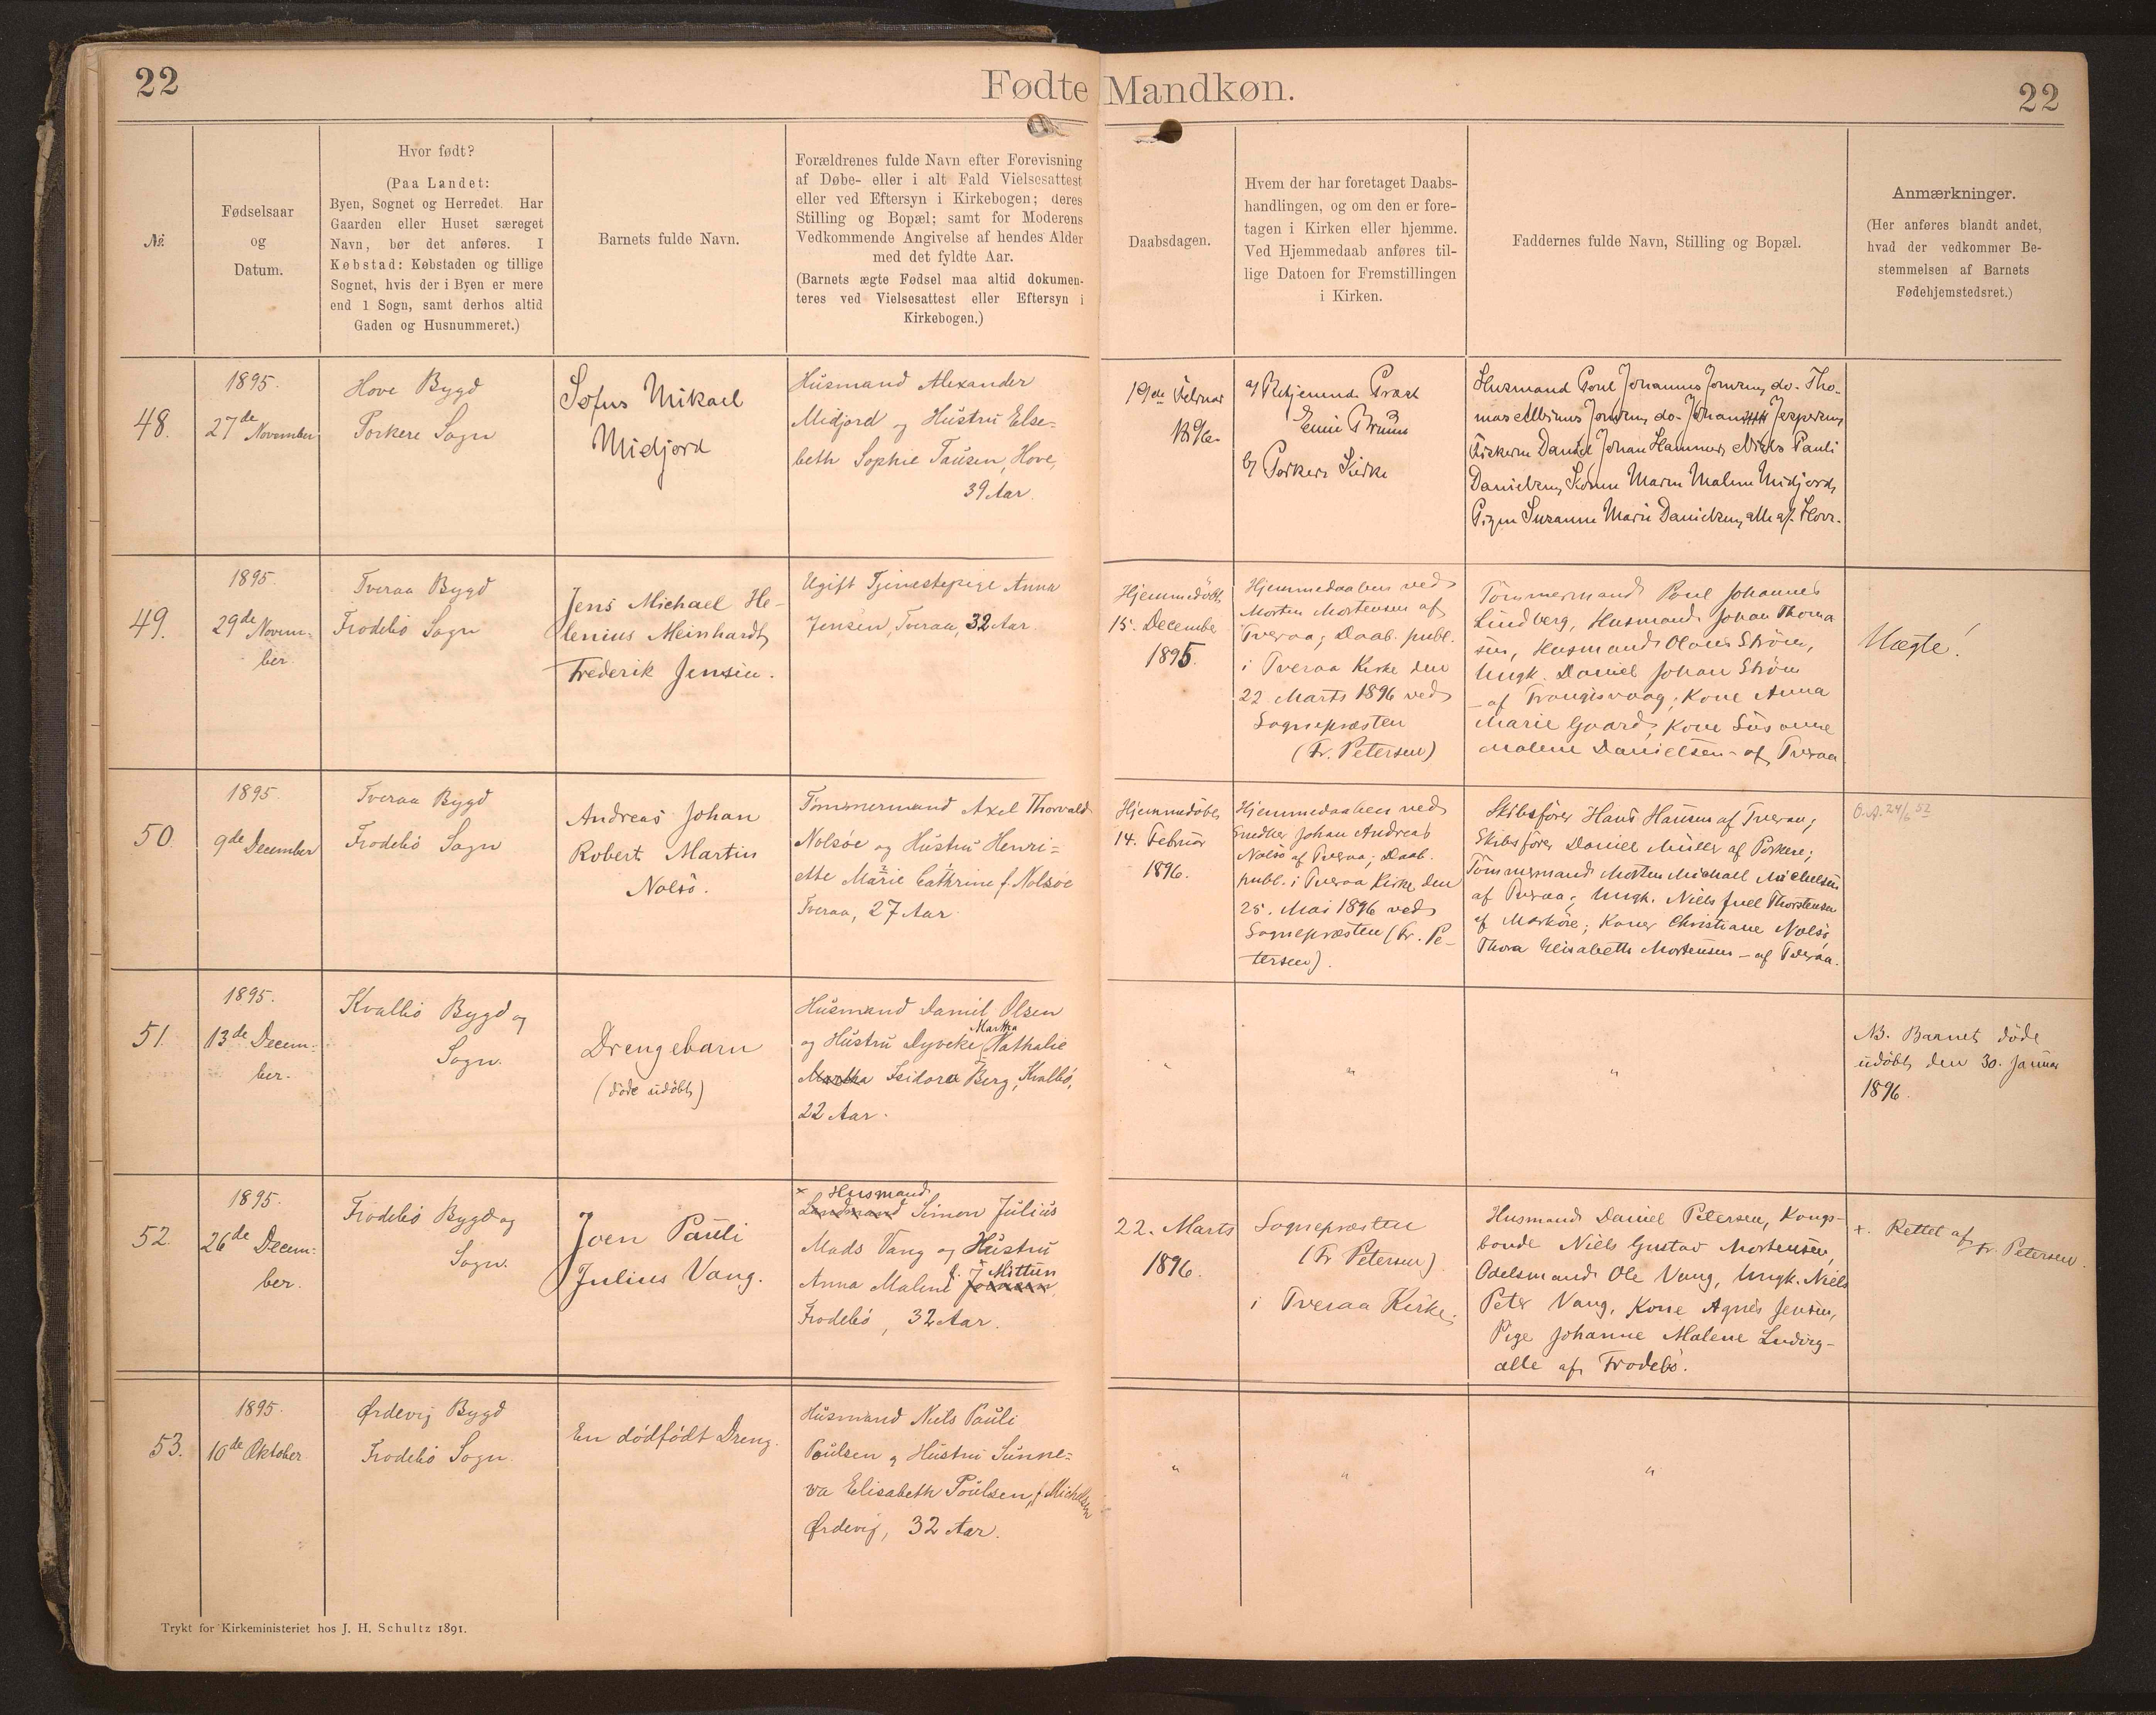 22
Fødte Mandkøn.
22
№
Fødselsaar
og
Datum.
Hvor født?
(Paa Landet:
Byen, Sognet og Herredet. Har
Gaarden eller Huset særeget
Navn, bør det anføres. I
Købstad: Købstaden og tillige
Sognet, hvis der i Byen er mere
end 1 Sogn, samt derhos altid
Gaden og Husnummeret.)
Barnets fulde Navn.
Forældrenes fulde Navn efter Forevisning
af Døbe- eller i alt Fald Vielsesattest
eller ved Eftersyn i Kirkebogen; deres
Stilling og Bopæl; samt for Moderens
Vedkommende Angivelse af hendes Alder
med det fyldte Aar.
(Barnets ægte Fødsel maa altid dokumen-
teres ved Vielsesattest eller Eftersyn i
Kirkebogen.)
Daabsdagen.
Hvem der har foretaget Daabs-
handlingen, og om den er fore-
tagen i Kirken eller hjemme.
Ved Hjemmedaab anføres til-
lige Datoen for Fremstillingen
i Kirken.
Faddernes fulde Navn, Stilling og Bopæl.
Anmærkninger.
(Her anføres blandt andet,
hvad der vedkommer Be-
stemmelsen af Barnets
Fødehjemstedsret.)
48.
1895.
27de November
Hove Bygd
Porkere Sogn
Sofus Mikael
Midjord
Husmand Alexander
Midjord og Hustru Else-
beth Sophie Tausen, Hove,
39 Aar.
19de Februar
1896.
a) Præst
Emil Bruun
b) Porkere Kirke
Husmand Poul Johannes Joensen, do. Tho-
mas Albinus Joensen, do. Johan Jespersen,
Fiskerne Daniel Johan Hammer, Niels Pauli
Danielsen, Konen Maren Malene Midjord,
Pigen Susanne Marie Danielsen, alle af Hove.
49.
1895.
29de Novem-
ber.
Tveraa Bygd
Frodebö Sogn
Jens Michael He-
lenius Meinhardt
Frederik Jensen.
Ugift Tjenestepige Anna
Jensen, Tveraa, 32 Aar
Hjemmedöbt
15. December
1895.
Hjemmedaaben ved
Morten Mortensen af
Tveraa; Daab. publ.
i Tveraa Kirke den
22 Marts 1896 ved
Sognepræsten
(Fr. Petersen)
Tömmermand Poul Johannes
Lindberg, Husmand Johan Thoma
sen, Husmand Olaus Ström,
Ungk. Daniel Johan Ström
- af Trangisvaag; Kone Anna
Marie Gaard, Kone Susanne
Malene Danielsen - af Tveraa
Uægte!
50.
1895.
9de December
Tveraa Bygd
Frodebö Sogn
Andreas Johan
Robert Martin
Nolsö.
Tömmermand Axel Thorvald
Nolsöe og Hustru Henri-
ette Marie Cathrine f. Nolsöe
Tveraa, 27 Aar.
Hjemmedöbt
14. Februar
1896.
Hjemmedaaben ved
Snedker Johan Andreas
Nolsö af Tveraa; Daab.
publ. i Tveraa Kirke den
25. Mai 1896 ved
Sognepræsten (Fr. Pe-
tersen).
Skibsförer Hans Hansen af Tveraa;
Skibsförer Daniel Müller af Porkere;
Tömmermand Morten Michael Michelsen
af Tveraa; Ungk. Niels Juel Thorstensen
af Morköre; Koner Christiane Nolsö,
Thora Elisabeth Mortensen - af Tveraa.
24/6 52
51.
1895.
13de Decem-
ber.
Kvalbö Bygd og
Sogn.
Drengebarn
(döde udöbt)
Husmand Daniel Olsen
Martha
og Hustru Dyveke Nathalie
Martha Isidora Berg, Kvalbö,
22 Aar.
"
"
"
"
NB. Barnet döde
udöbt den 30. Januar
1896.
52.
1895.
26de Decem-
ber.
Frodebö Bygd og
Sogn.
Joen Pauli
Julius Vang.
× Husmand
Landmand Simon Julius
Mads Vang og Hustru
f. Mittun
Anna Malene
Frodebö, 32 Aar.
22. Marts
1896.
Sognepræsten
(Fr. Petersen)
i Tveraa Kirke.
Husmand Daniel Petersen, Kongs-
bonde Niels Gustav Mortensen,
Odelsmand Ole Vang, Ungk. Niels
Peter Vang, Kone Agnes Jensen,
Pige Johanne Malene Ludvig-
alle af Frodebö.
×. Rettet af
Fr. Petersen.
53.
1895.
10de Oktober
Ørdevig Bygd
Frodebö Sogn.
En dödfödt Dreng.
Husmand Niels Pauli
Poulsen og Hustru Sunne-
va Elisabeth Poulsen, f. Michelsen
Ørdevig, 32 Aar.
"
"
"
Trykt for Kirkeministeriet hos J. H. Schultz 1891.